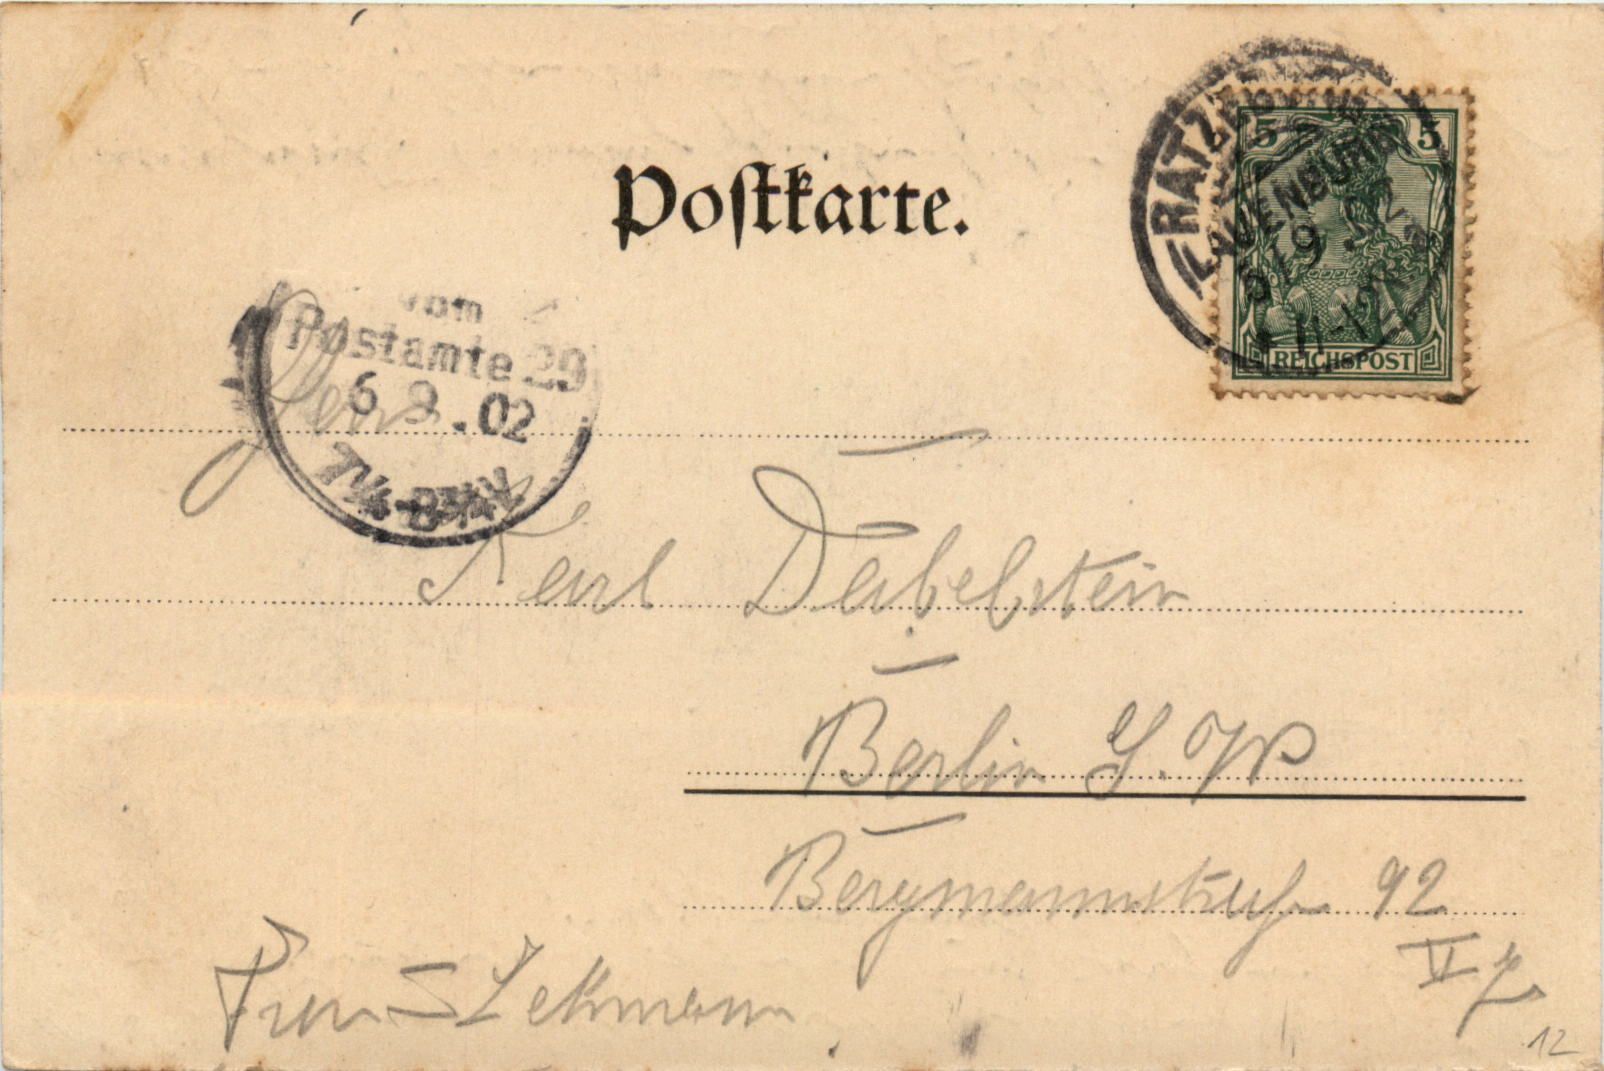 Postkarte.
RATZ
LAUENBURG
5/9 02
11-12
5 5
REICHSPOST
vom
Postamte 29
6 9 .02
7¼-8¾V
Herrn
Karl Dabelstein
Berlin S.W
Bergmannstraße 92
Frau Lehmann
12